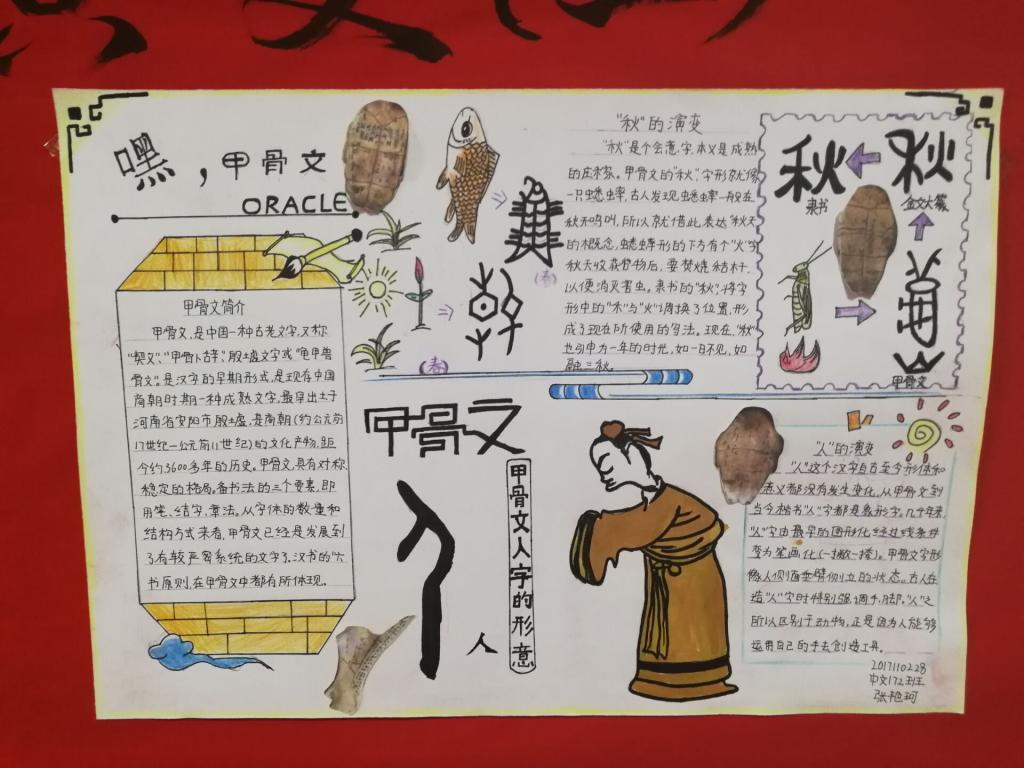 嘿，甲骨文
ORACLE
甲骨文简介
甲骨文，是中国一种古老文字，又称
"契文"、"甲骨卜辞"、殷墟文字或"龟甲兽
骨文"。是汉字的早期形式，是现存中国
商朝时期一种成熟文字，最早出土于
河南省安阳市殷墟，是商朝(约公元前
17世纪—公元前11世纪)的文化产物，距
今约3600多年的历史。甲骨文，具有对称、
稳定的格局。备书法的三个要素，即
用笔、结字、章法。从字体的数量和
结构方式来看，甲骨文已经是发展到
了有较严密系统的文字了。汉书的"六
书"原则，在甲骨文中都有所体现。
(春)
(春)
"秋"的演变
"秋"是个会意字，本义是成熟
的庄稼。甲骨文的"秋"，字形就像
一只蟋蟀，古人发现蟋蟀一般在
秋天鸣叫，所以就借此表达"秋天"
的概念，蟋蟀形的下方有个"火"字
秋天收获谷物后，要焚烧秸杆，
以便消灭害虫。隶书的"秋"，将字
形中的"禾"与"火"调换了位置，形
成了现在所使用的写法。现在，"秋"
也引申为一年的时光，如一日不见，如
隔三秋。
秋
秋
隶书
金文大篆
甲骨文
甲骨文
甲骨文人字的形意
人
"人"的演变
"人"这个汉字自古至今形体和
意义都没有发生变化，从甲骨文到
当今楷书"人"字都是象形字。几千年来，
"人"字由最早的图形化经过线条终
变为笔画化(一撇一捺)。甲骨文字形
像人侧面垂臂侧立的状态。古人在
造"人"字时特别强调手，脚，"人"之
所以区别于动物，正是因为人能够
运用自己的手去创造工具。
2017110228
中文172班
张艳珂